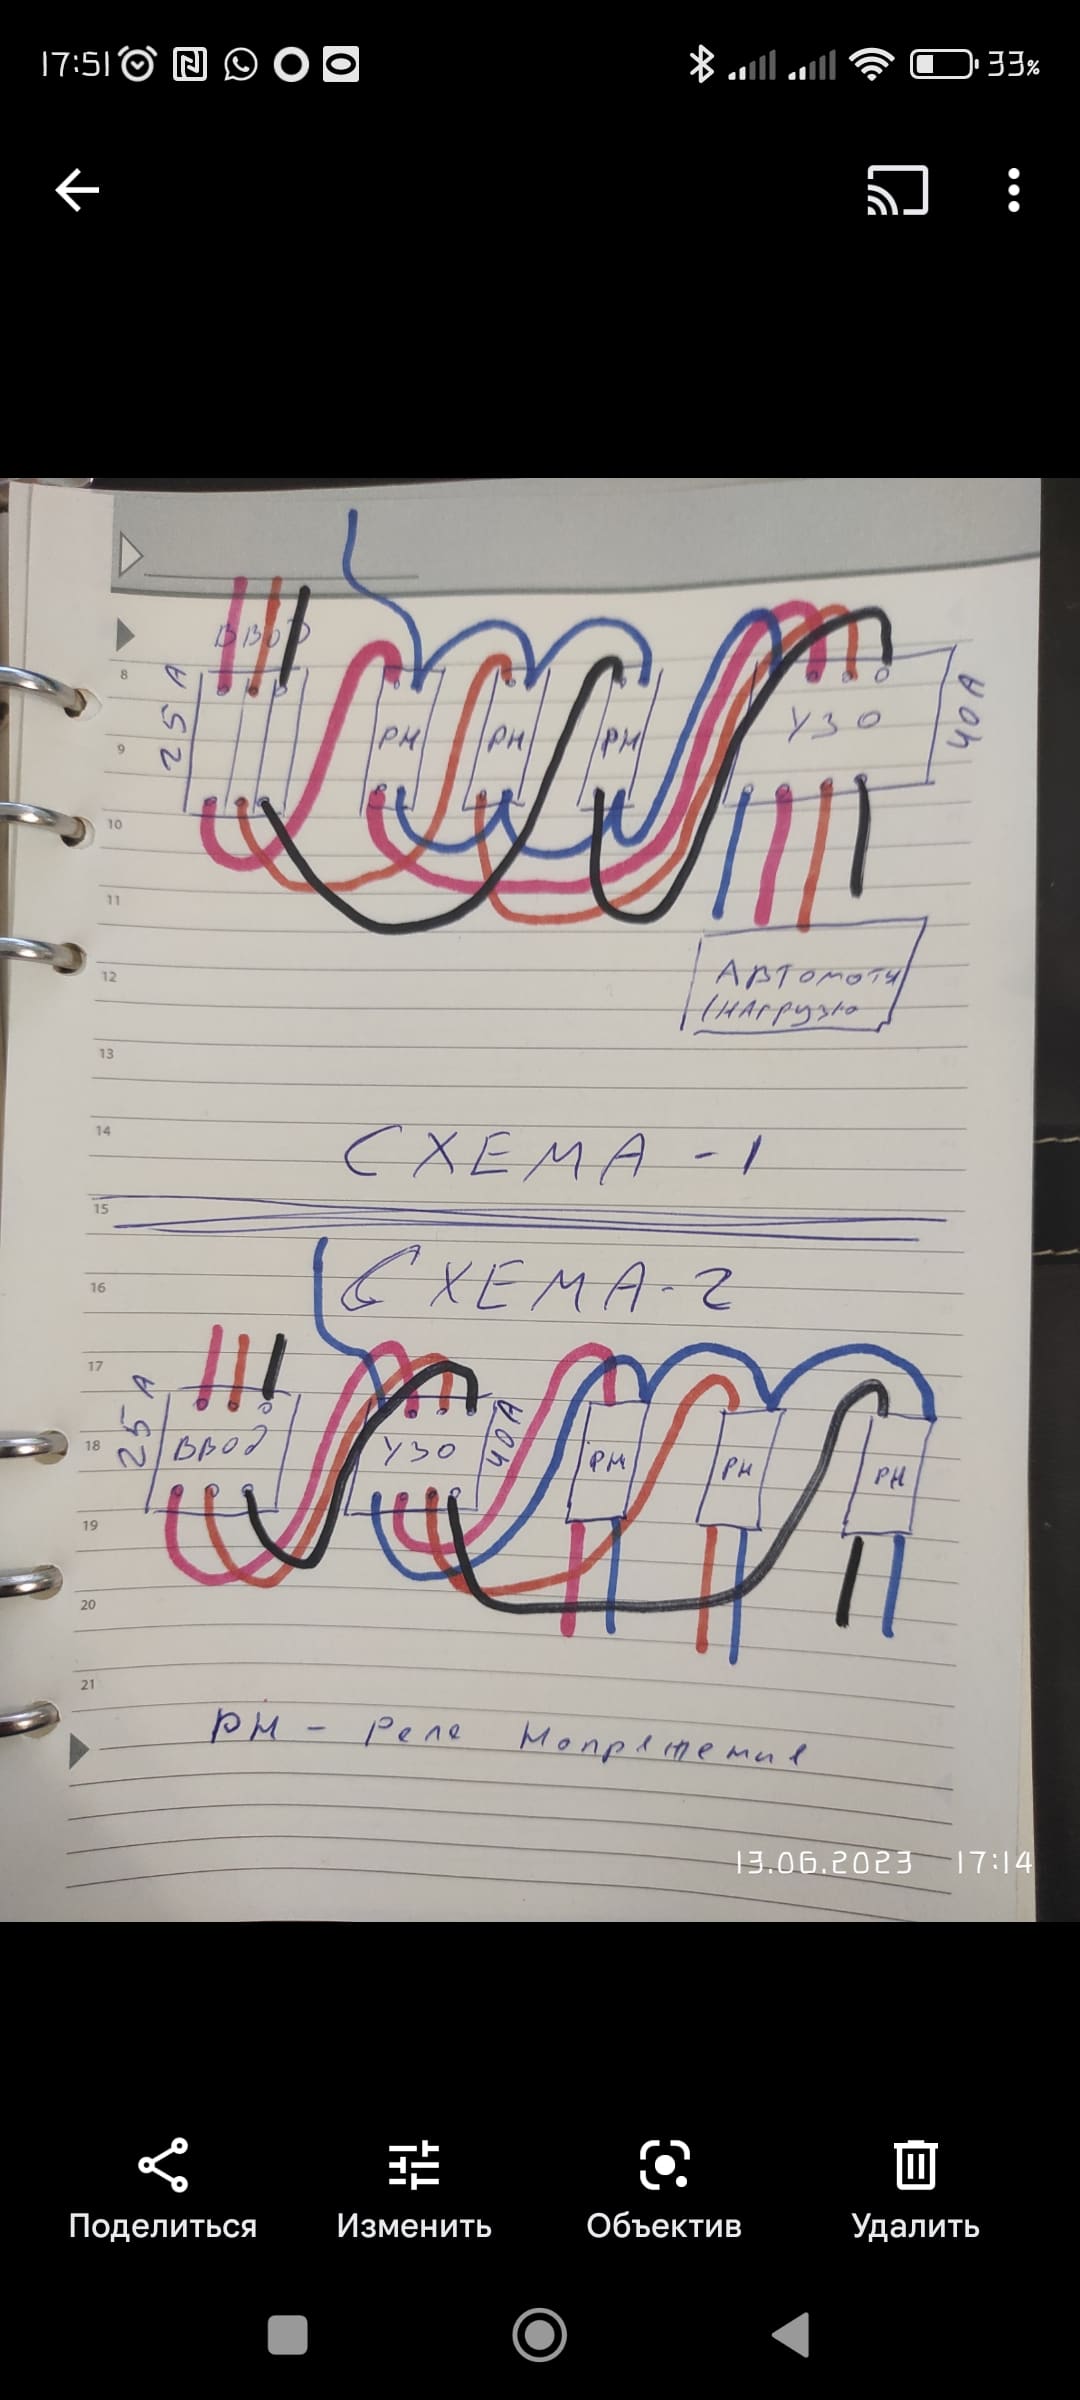 17:51
33%
ВВОД
25 А
РН
РН
РН
УЗО
40 А
8
9
10
11
12
13
14
15
16
17
18
19
20
21
Автомоты
/нагрузка
СХЕМА - 1
СХЕМА - 2
25 А
ВВОД
УЗО
40А
РН
РН
РН
РН - Реле Напряжения
13.06.2023 17:14
Поделиться
Изменить
Объектив
Удалить